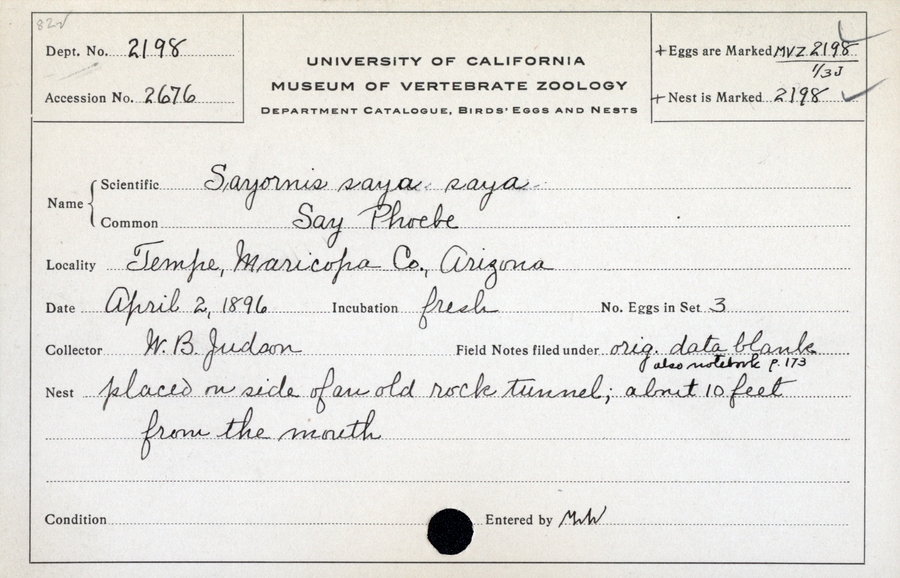 82
Dept. No. 2198
Accession No. 2676
UNIVERSITY OF CALIFORNIA
MUSEUM OF VERTEBRATE ZOOLOGY
DEPARTMENT CATALOGUE, BIRDS' EGGS AND NESTS
+ Eggs are Marked MVZ 2198
1/3J
+ Nest is Marked 2198
Name
Scientific Sayornis saya saya
Common Say Phoebe
Locality Tempe, Maricopa Co., Arizona
Date April 2, 1896 Incubation fresh No. Eggs in Set 3
Collector W. B. Judson Field Notes filed under orig. data blank
also notebook p. 173
Nest placed on side of an old rock tunnel; about 10 feet
from the mouth
Condition Entered by